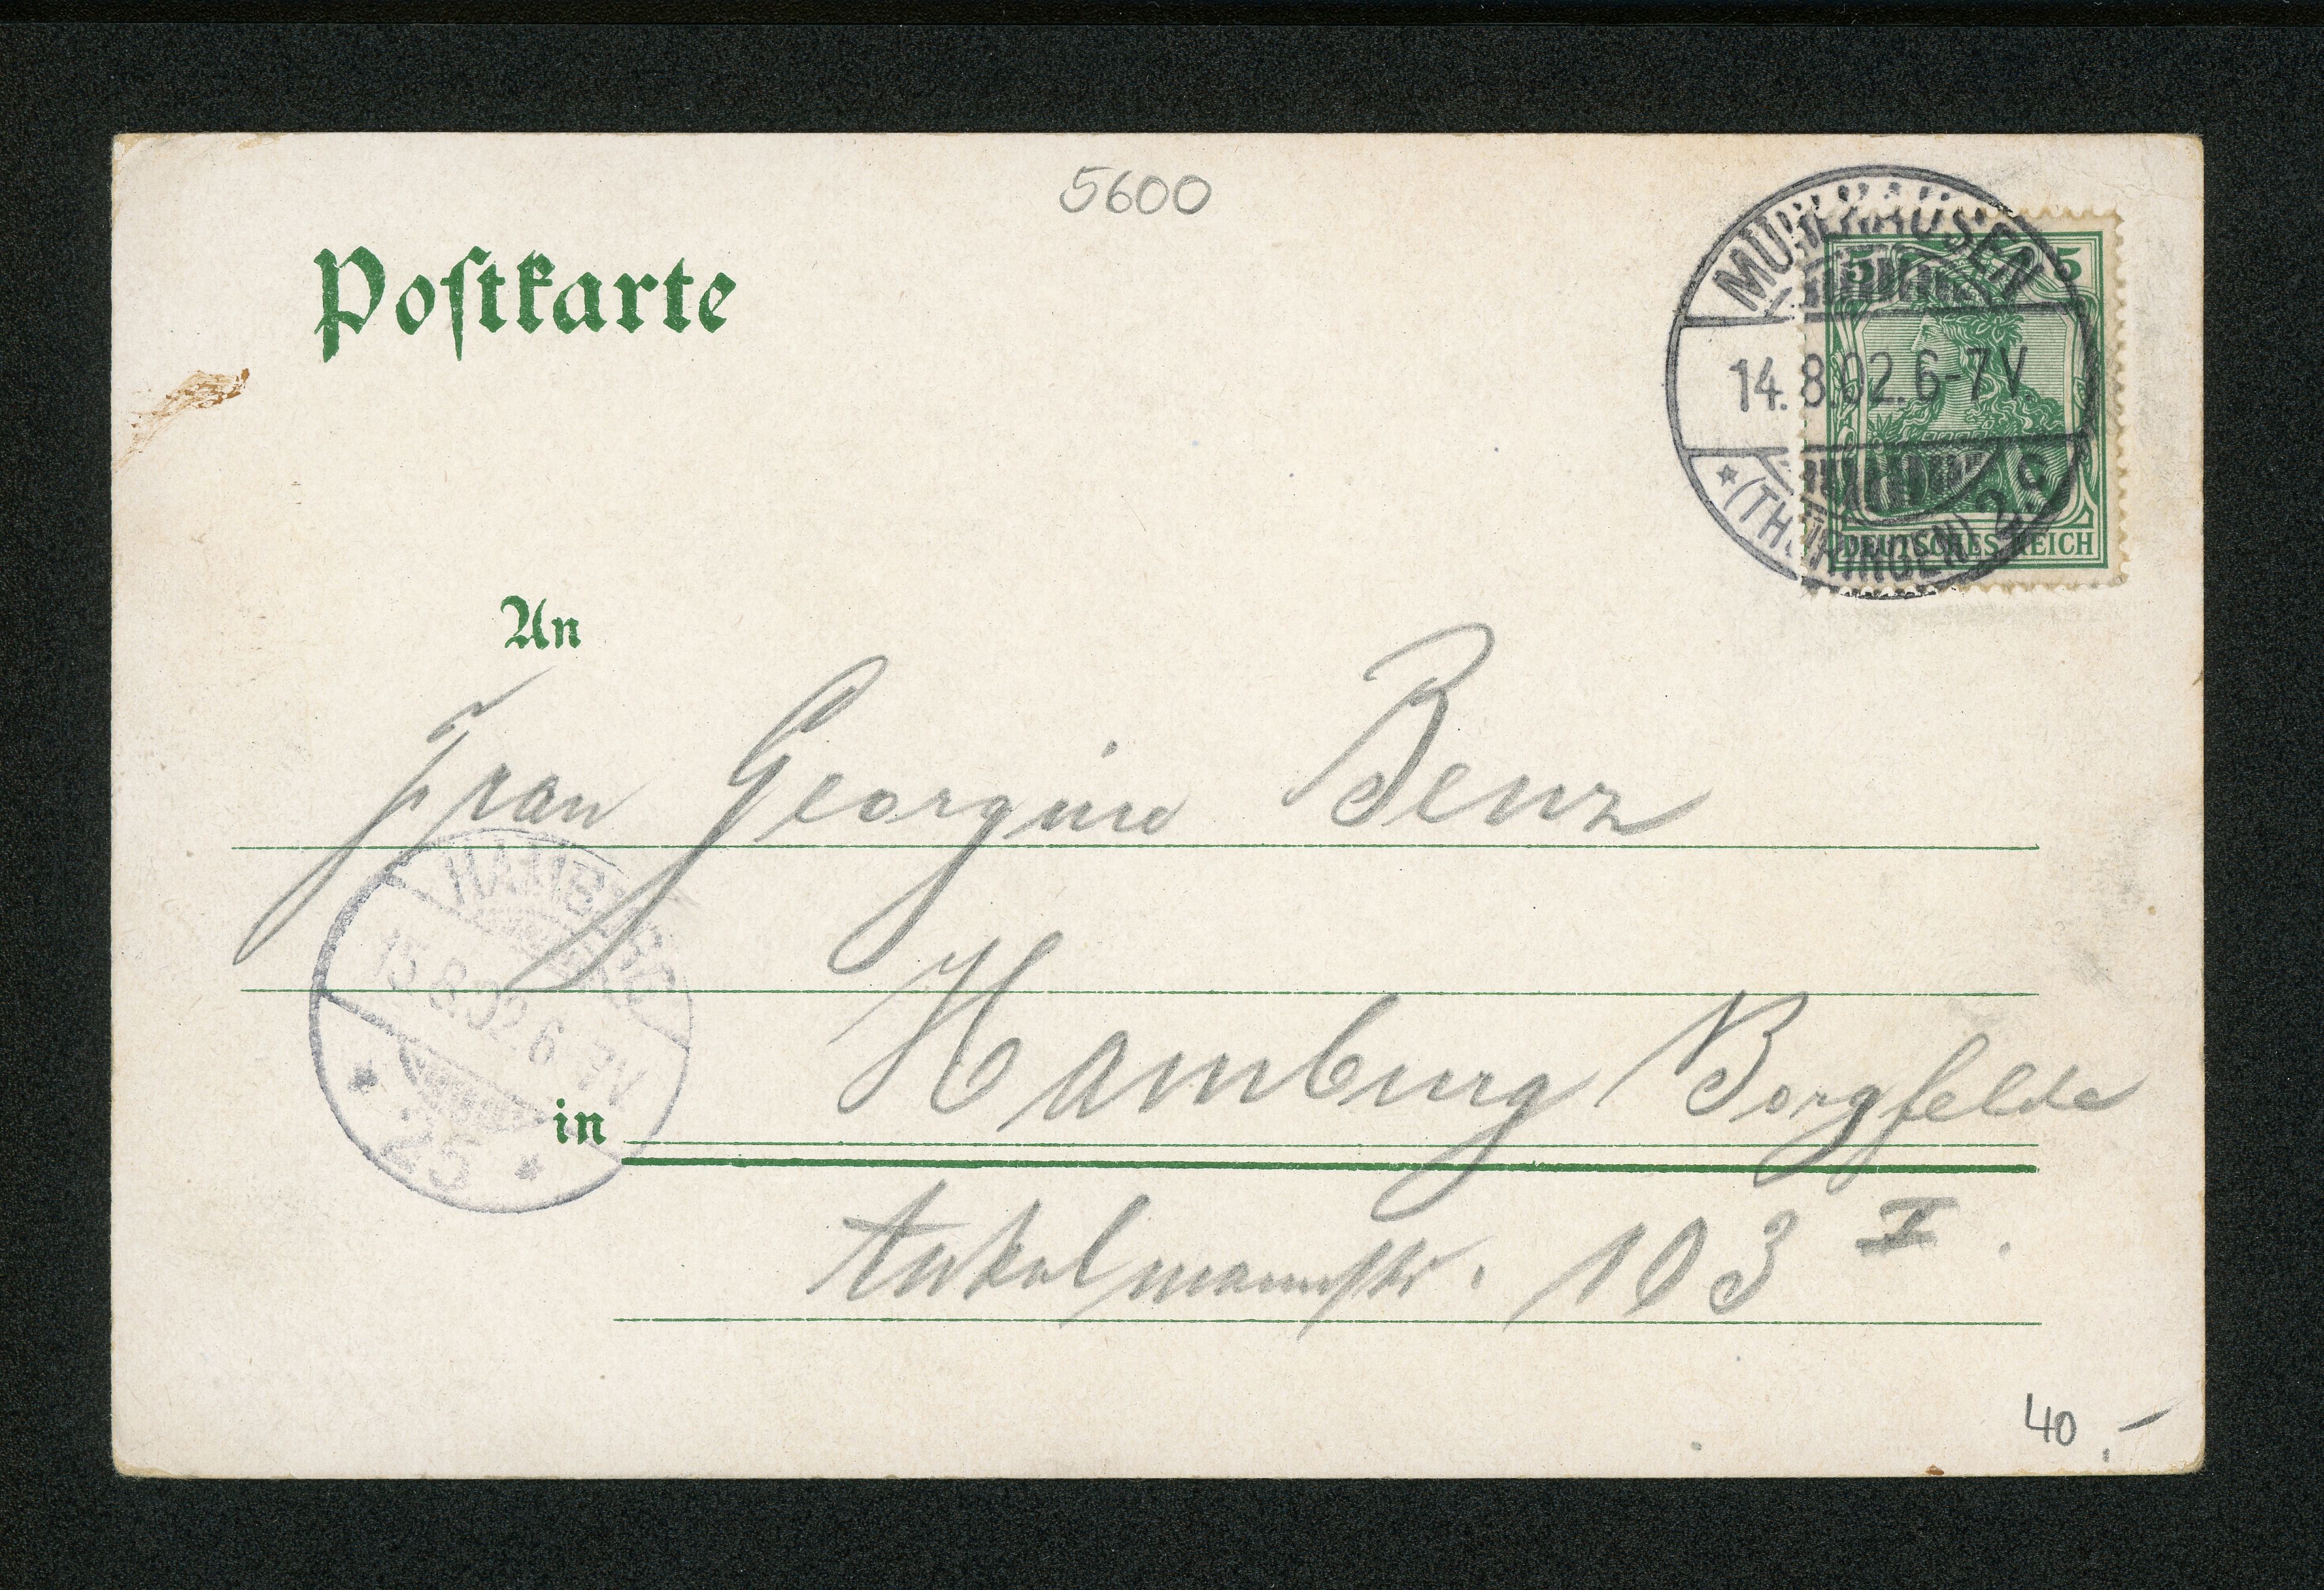 5600
Postkarte
MÜHLHAUSEN
14.8.02.6-7V.
* (THÜRINGEN) 2. c
5 5
DEUTSCHES REICH
An
Frau Georgine Benz
HAMBURG
15.8.02.6-7V
* 25 *
in Hamburg Borgfelde
Ankelmannstr. 103 I.
40.-